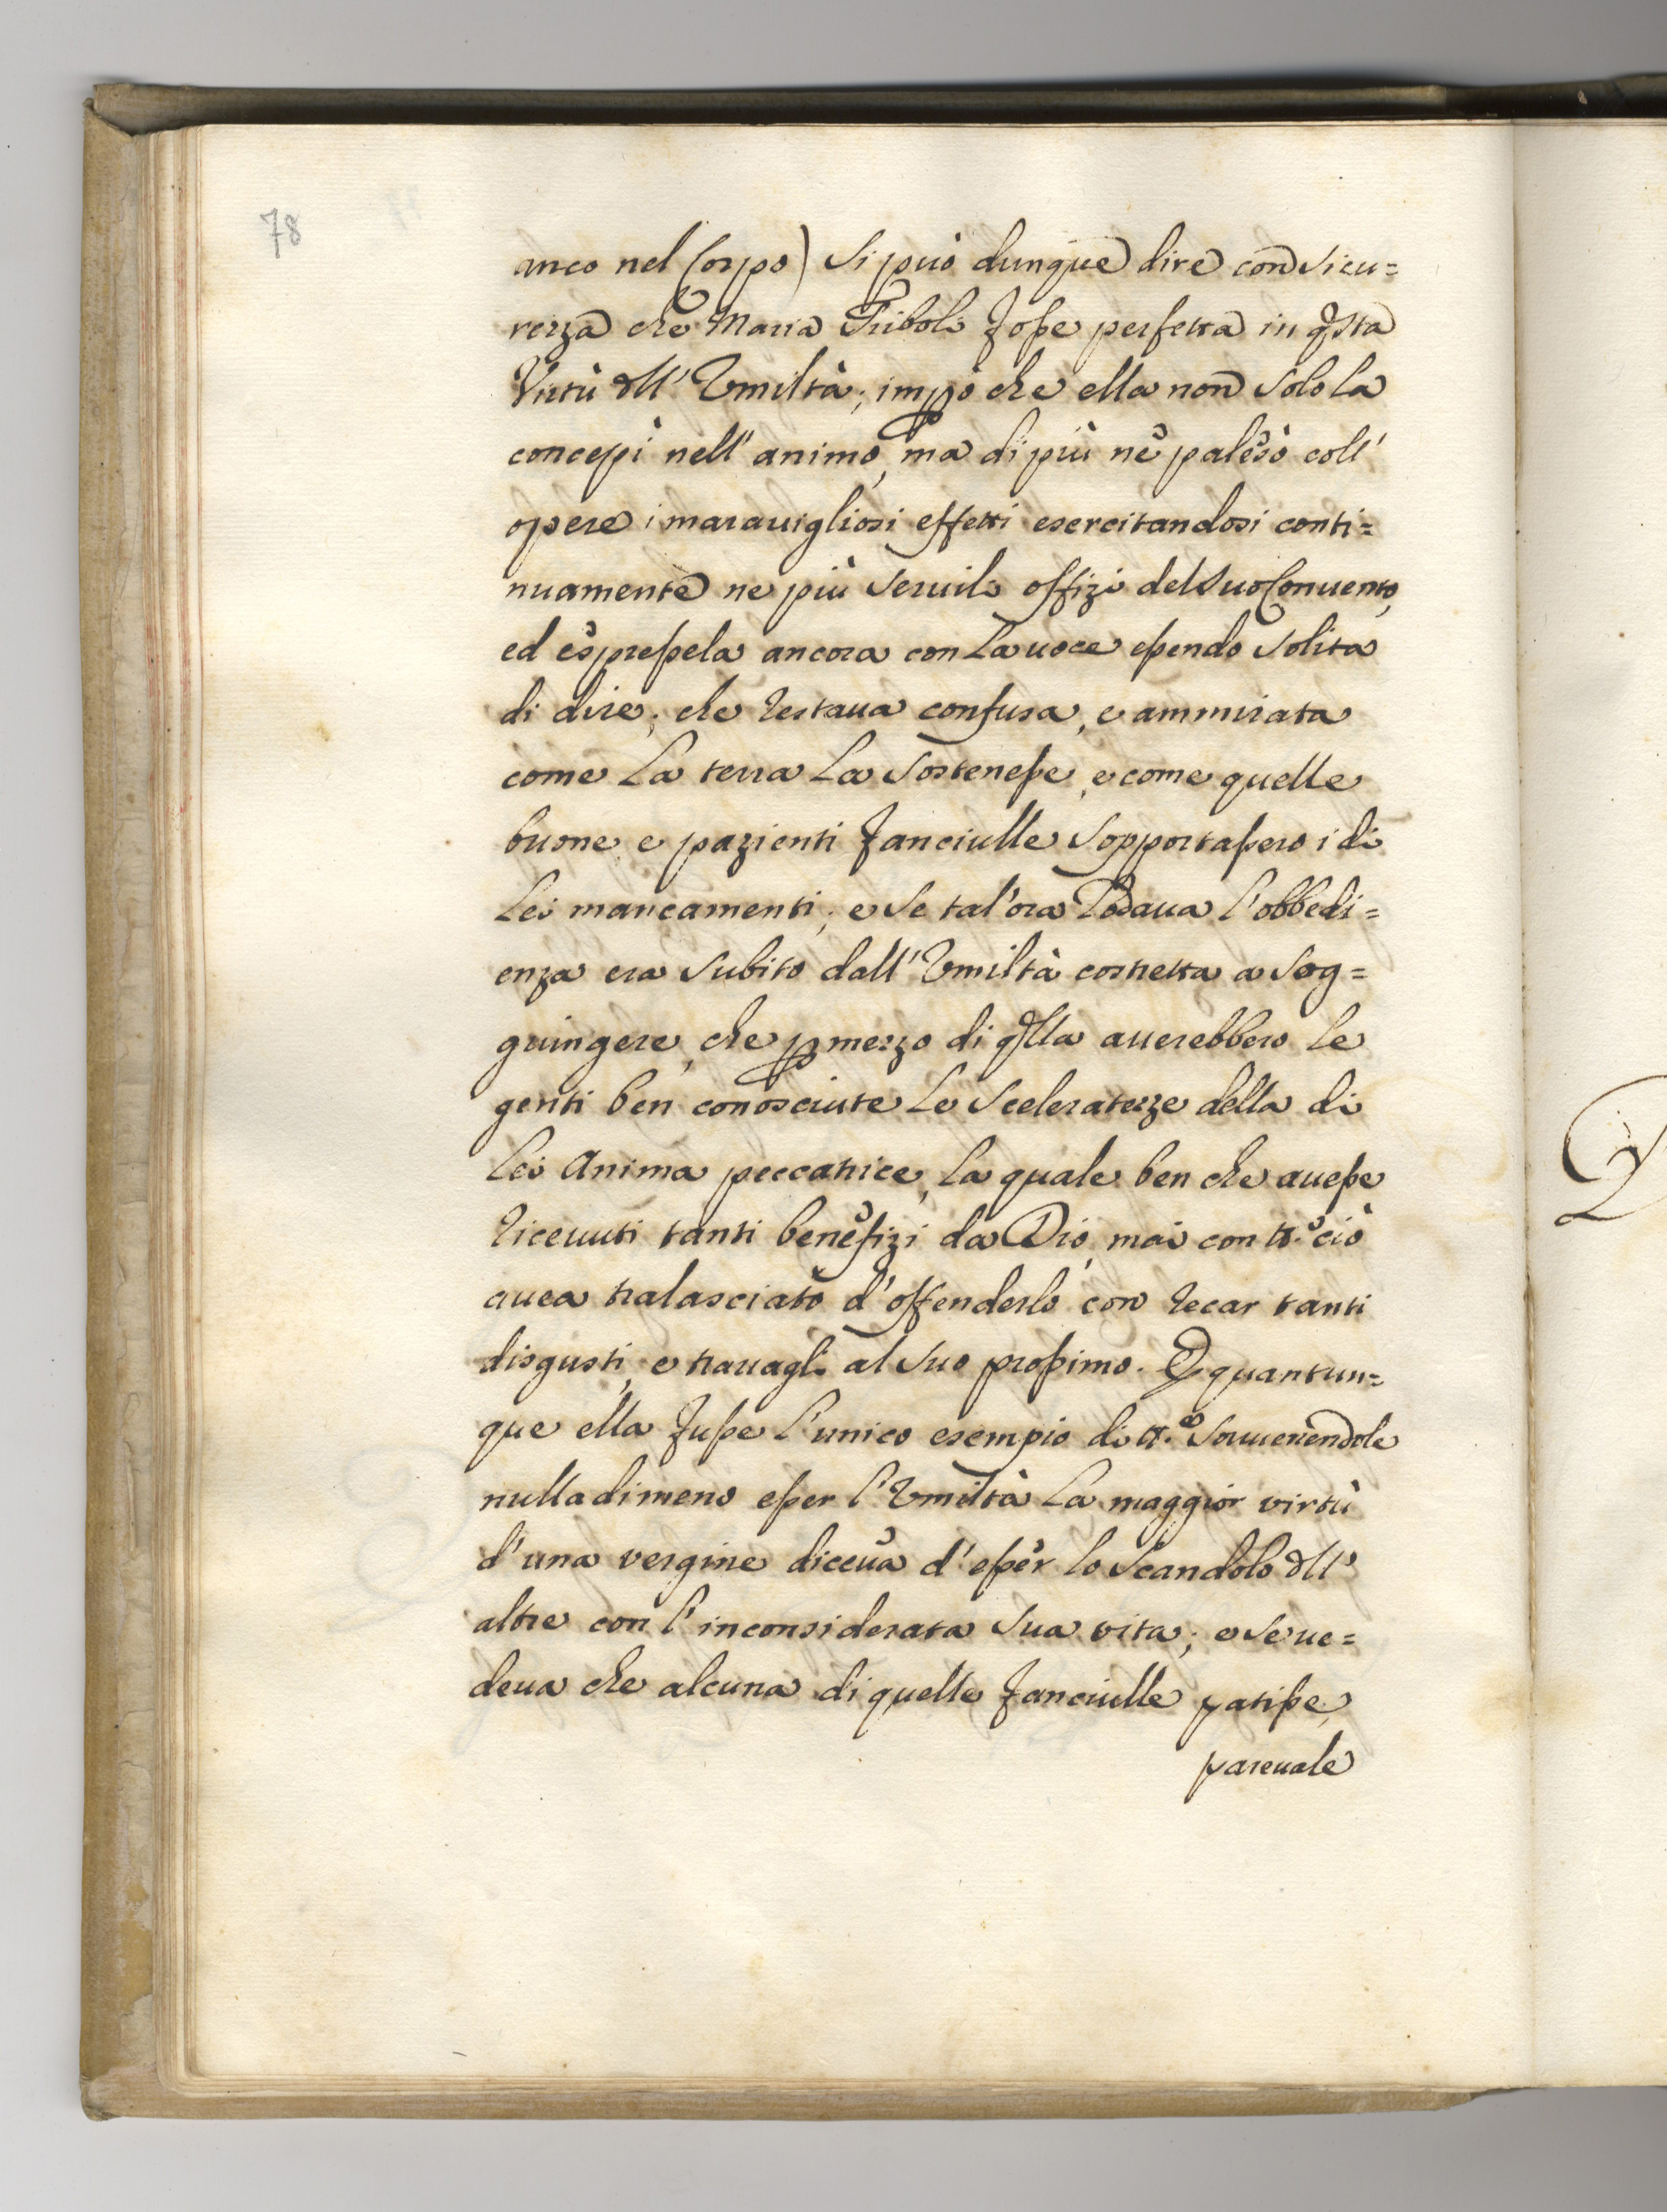 78
anco nel Corpo) Si può dunque dire con Sicu=
rezza che Maria Triboli fosse perfetta in qsta
Virtù dll' Vmiltà; impò che ella non Solo la
concepì nell' animo, ma di più ne palesò coll'
opere i marauigliosi effetti esercitandosi conti=
nuamente ne più Seruili offizi del Suo Conuento,
ed espressela ancora con la uoce essendo Solita
di dire; che restaua confusa, e ammirata
come la terra la Sostenesse, e come quelle
buone, e pazienti fanciulle Sopportassero i di
lei mancamenti; e Se tal'ora lodaua l'obbedi=
enza era Subito dall' Vmiltà costretta a Sog=
giungere, che p mezzo di qlla auerebbero le
genti ben conosciute le Sceleratezze della di
lei Anima peccatrice, la quale ben che auesse
riceuuti tanti benefizi da Dio, mai con tt.o ciò
auea tralasciato d'offenderlo con recar tanti
disgusti, e trauagli al Suo prossimo. E quantun=
que ella fusse l'unico esempio di tt.e Souuenendole
nulladimeno esser l'Vmiltà la maggior virtù
d'una vergine diceua d'esser lo Scandolo dll'
altre con l'inconsiderata Sua vita; e Se ue=
deua che alcuna di quelle fanciulle patisse,
pareuale